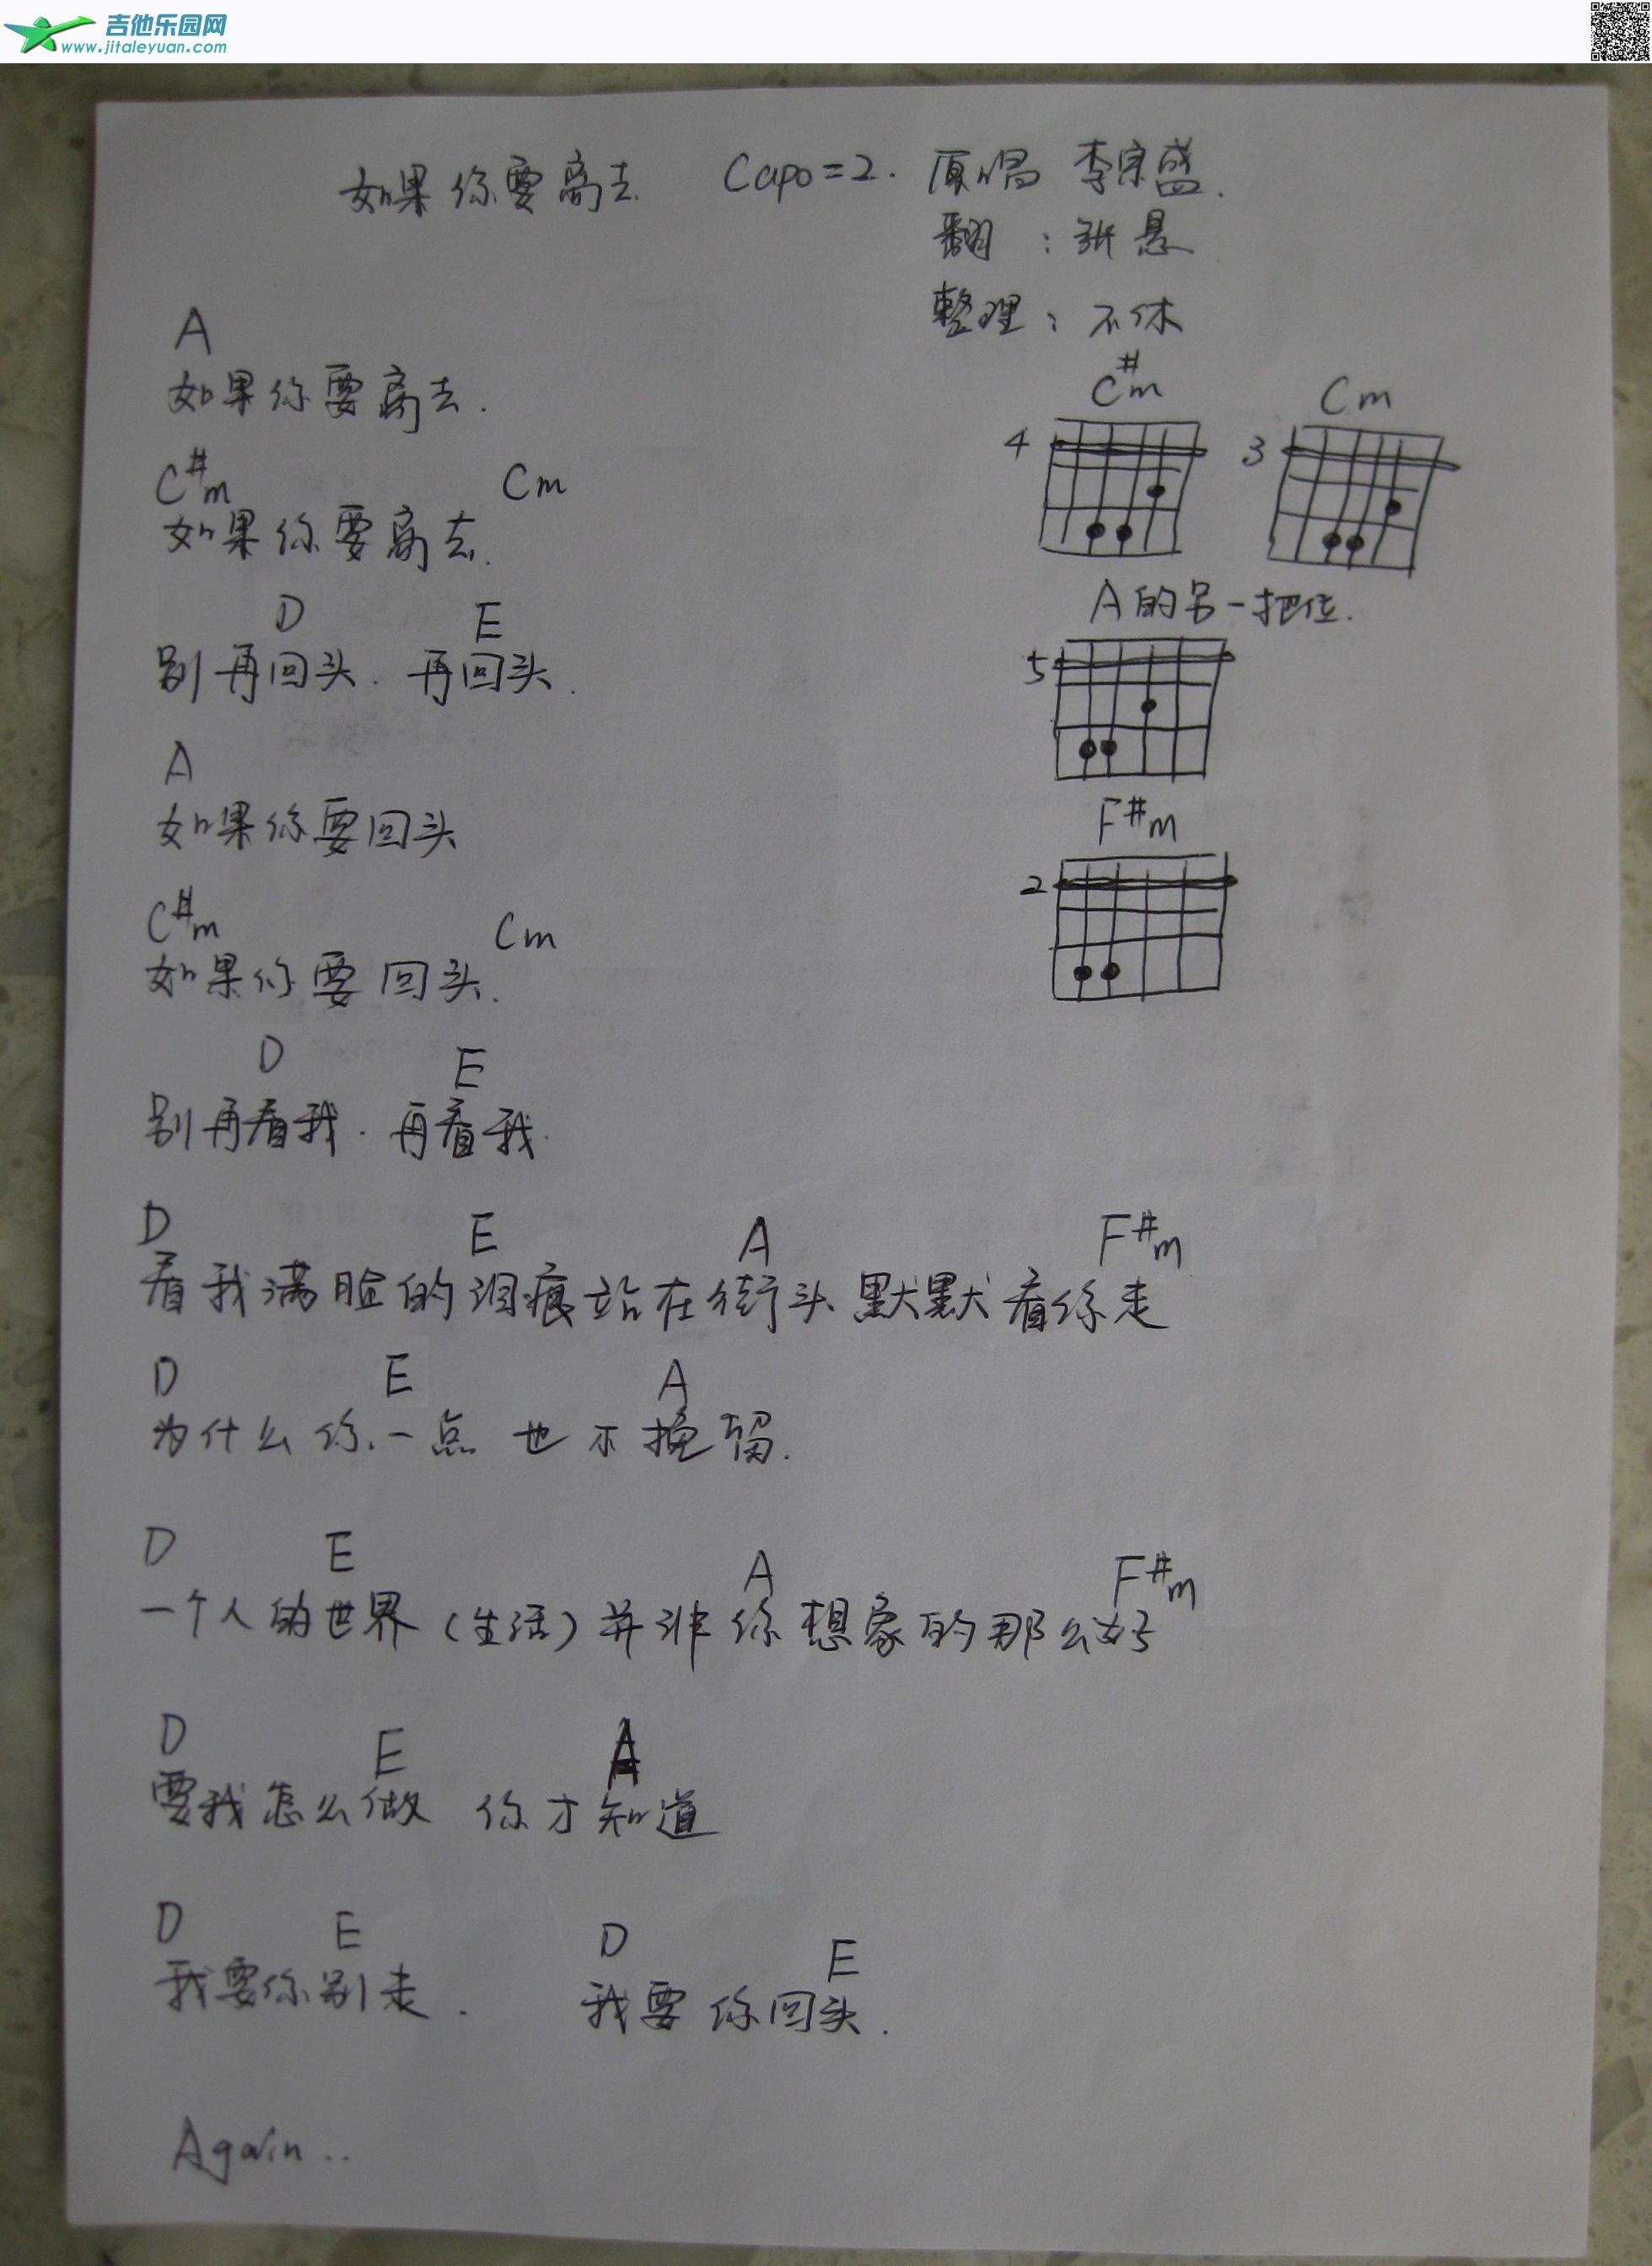 吉他乐园网
www.jitaleyuan.com
如果你要离去 Capo=2. 原唱 李宗盛.
翻 : 张悬
整理: 不休
A
如果你要离去.
C#m Cm
如果你要离去.
D E
别再回头. 再回头.
A
如果你要回头
C#m Cm
如果你要回头.
D E
别再看我. 再看我.
D E A F#m
看我满脸的泪痕站在街头默默看你走
D E A
为什么你一点也不挽留.
D E A F#m
一个人的世界(生活)并非你想象的那么好
D E A
要我怎么做 你才知道
D E D E
我要你别走. 我要你回头.
Again..
C#m Cm
4 3
A的另一把位.
5
F#m
2